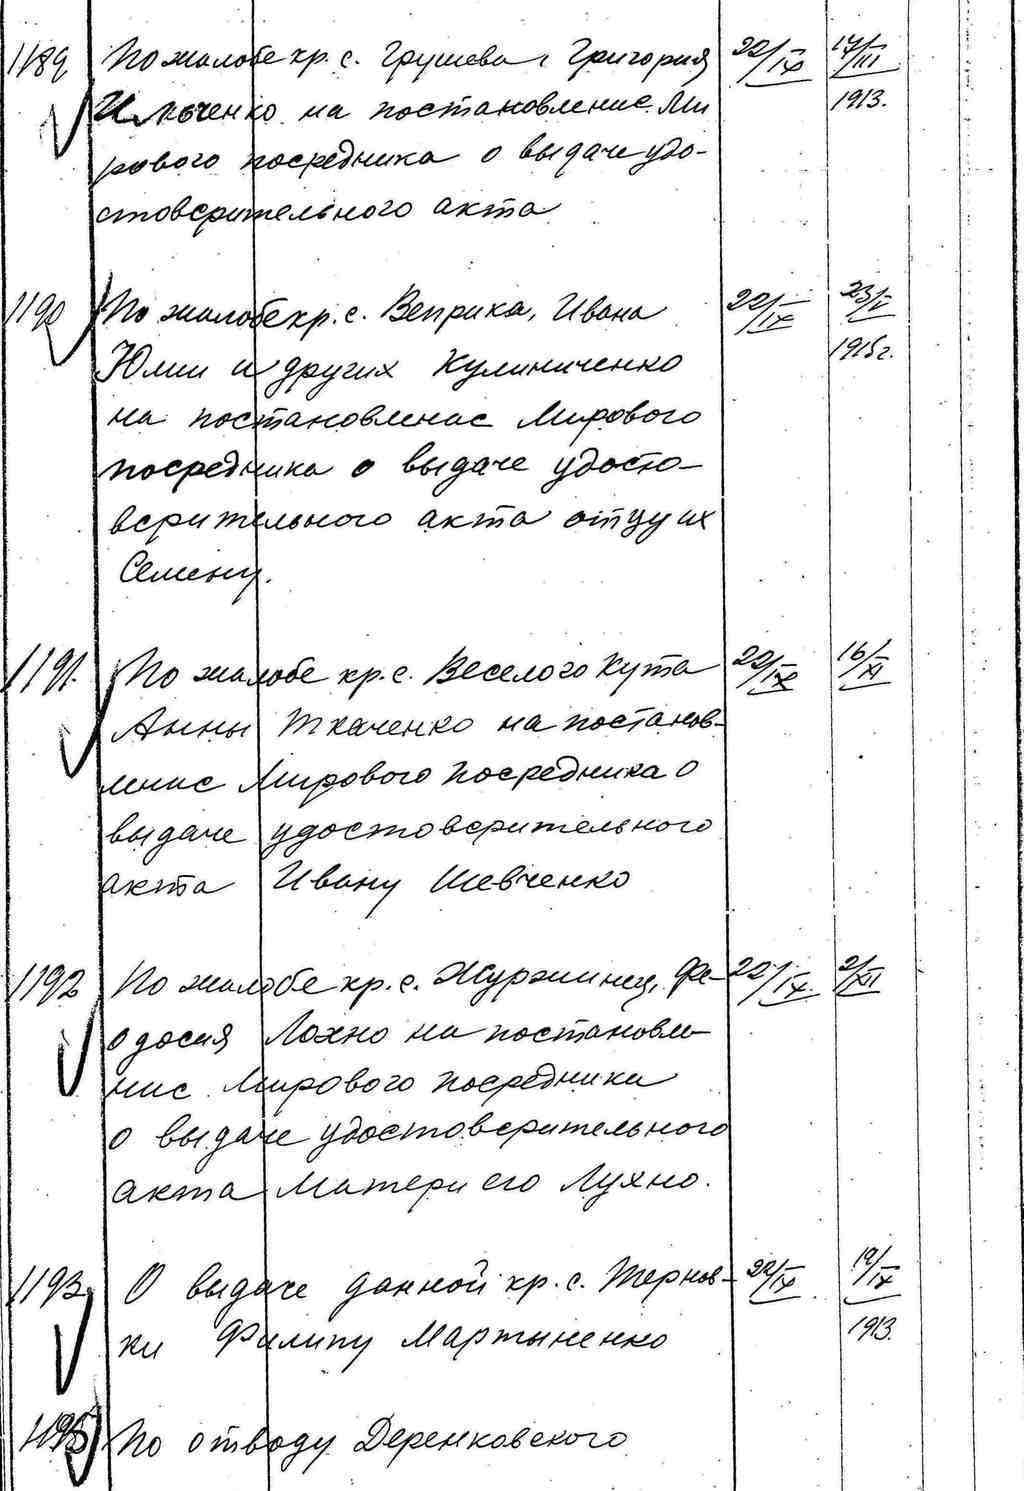 1189 По жалобе кр. с. Грушева Григория 22/IX 17/III
Ильченко на постановление Ми 1913.
рового посредника о выдаче удо-
стоверительного акта
1190 По жалобе кр. с. Веприка, Ивана 22/IX 23/V
Юлии и других Кулиниченко 1915г.
на постановление Мирового
посредника о выдаче удосто-
верительного акта отцу их
Семену.
1191. По жалобе кр. с. Веселого Кута 22/IX 16/XI
Анны Ткаченко на постанов-
ление Мирового посредника о
выдаче удостоверительного
акта Ивану Шевченко
1192 По жалобе кр. с. Журжинец, Фе- 22/IX. 2/XII
одосия Лохно на постановле-
ние Мирового посредника
о выдаче удостоверительного
акта матери его Лухно.
1193 О выдаче данной кр. с. Тернов- 22/IX 19/IX
ки Филипу Мартыненко 1913.
По отводу Деренковского